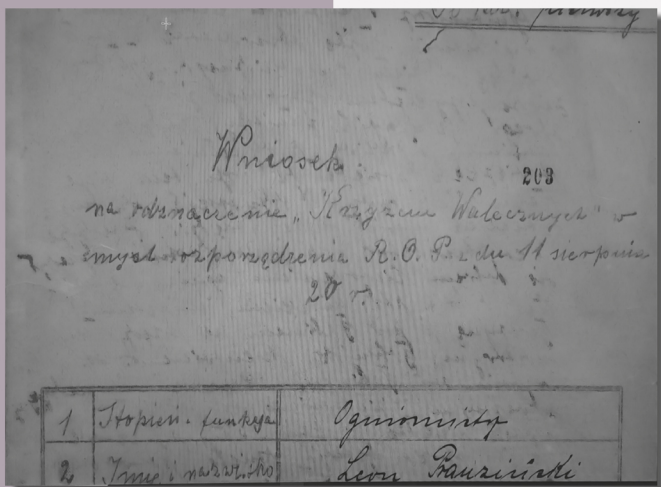 Wniosek.
203
na odznaczenie „Krzyżem Walecznych" w
myśl rozporządzenia R.O.P. z dn 11 sierpnia
20 r.
1 Stopień - funkcja Ogniomistrz
2 Imię i nazwisko Leon